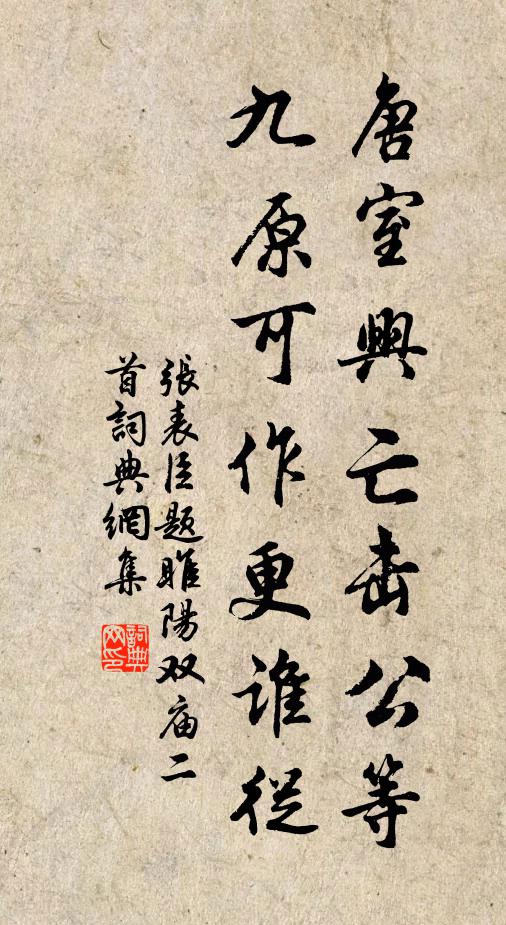 唐室興亡击公等
九原可作更谁從
張表臣题睢陽双庙二
首詞典網集
詞典
网印